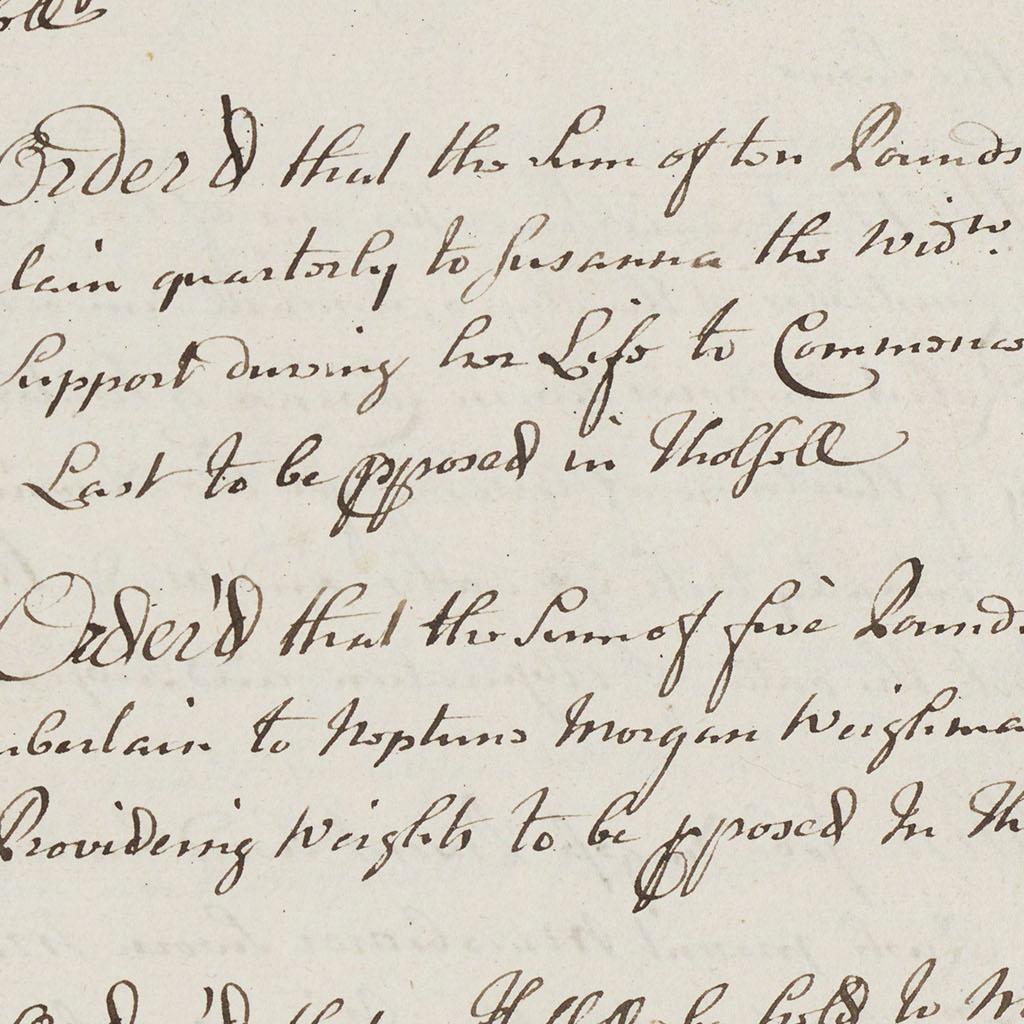 Order'd that the Sum of ten Pounds
lain quarterly to Susanna the Widw.
Support during her Life to Commence
Last to be pposed in Tholsell
Order'd that the Sum of five Pound
mberlain to Neptune Morgan Weighma
Providering Weights to be pposed In Th
Order'd that a be held to M